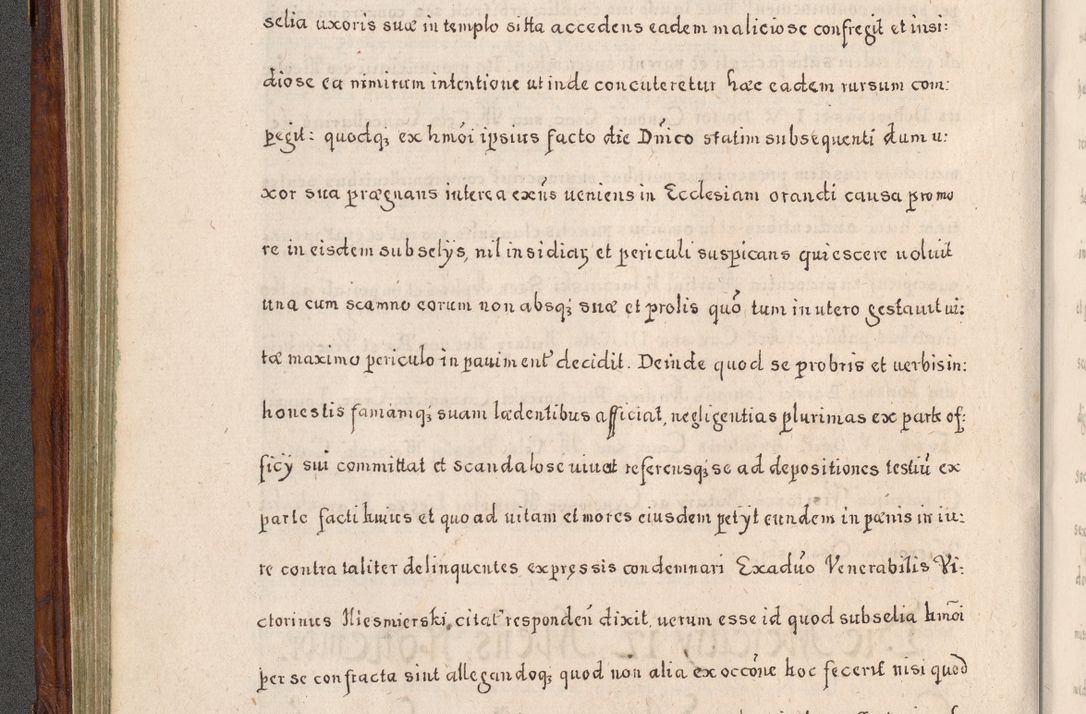 selia uxoris suæ in templo sitta accedens eadem maliciose confregit et insi:
diose ea nimirum intentione ut inde concuteretur hæc eadem rursum com:
pegit: quodq; ex hmõi ipsius facto die Dñico statim subsequenti dum u:
xor sua prægnans interea exijs ueniens in Ecclesiam orandi causa promo
re in eisdem subselijs, nil insidiaȝ et periculi suspicans quiescere uoluit
una cum scamno eorum non absq; suæ et prolis quõ tum in utero gestauit ui:
tæ maximo periculo in pauiment' decidit. Deinde quod se probris et uerbis in:
honestis famamq; suam lædentibus afficiat, negligentias plurimas ex parte of:
ficij sui committat et scandalose uiuat referensq; se ad depositiones testiũ ex
parte facti huius et quo ad uitam et mores eiusdem petijt eundem in pænis in iu:
re contra taliter delinquentes expressis condemnari Exaduõ Venerabilis Vi:
ctorinus Niesmierski, citat' responden̄ dixit, uerum esse id quod subselia hmõi
per se confracta sint allegandoq; quod non alia ex occõne hoc fecerit nisi quod